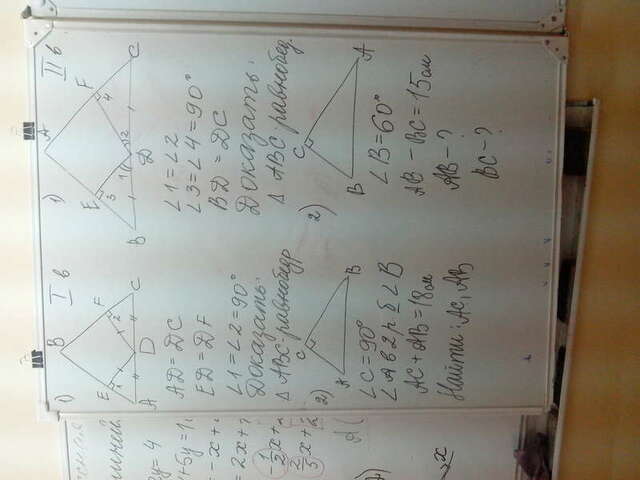 I в
1)
B
E
F
1
2
A
D
C
AD = DC
ED = DF
∠1=∠2=90°
Доказать:
Δ ABC-равнобедр
2)
C
A
B
∠C=90°
∠A в 2 р б ∠B
AC + AB = 18 см
Найти: AC, AB
II в
1)
A
E
F
3
4
1
2
B
D
C
∠1=∠2
∠3=∠4=90°
BD = DC
Доказать:
Δ ABC равнобед.
2)
C
B
A
∠B=60°
AB - BC=15см
AB - ?
BC - ?
y= 4
+5y=1
= -x +
= 2x +
-1/2x+
2/3x+2
x